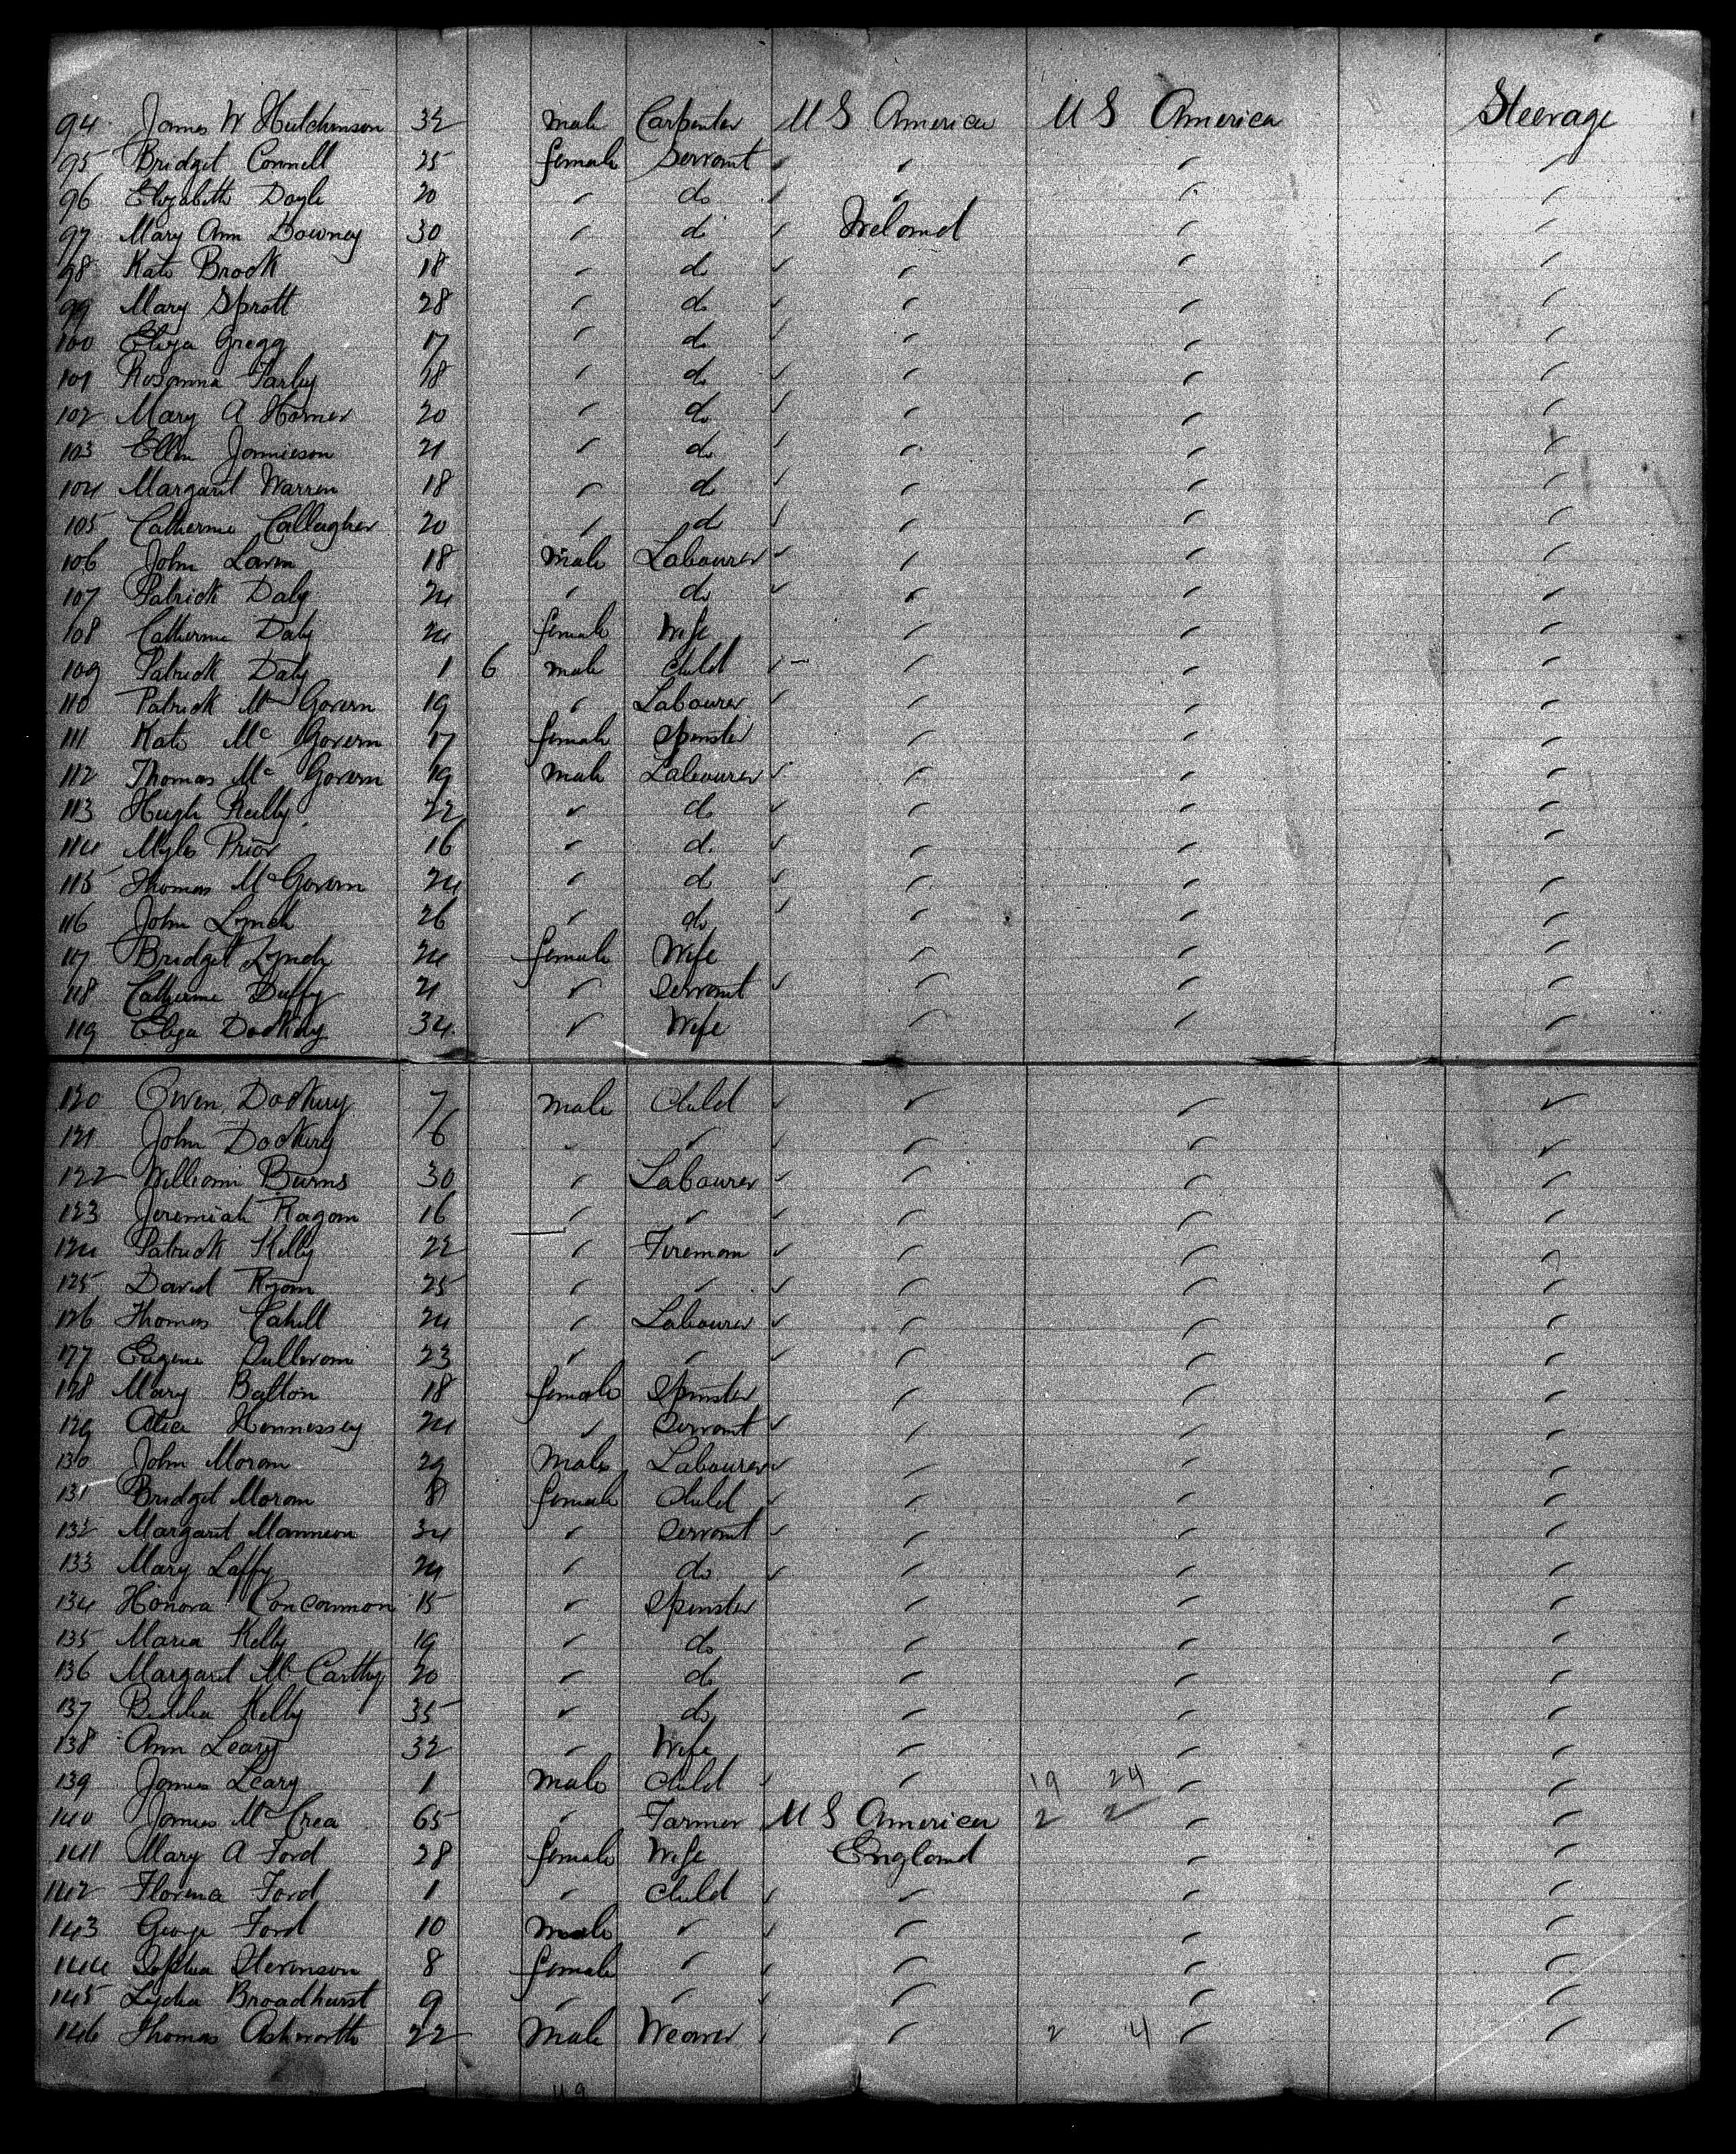 94 James W Hutchinson 32 male Carpenter U S America U S America Steerage
95 Bridget Connell 25 female Servant " " "
96 Elizabeth Doyle 20 " do " " "
97 Mary Ann Downey 30 " do Ireland " "
98 Kate Brock 18 " do " " "
99 Mary Sprott 28 " do " " "
100 Eliza Gregg 17 " do " " "
101 Rosanna Farley 18 " do " " "
102 Mary A Horner 20 " do " " "
103 Ellen Jamieson 21 " do " " "
104 Margaret Warren 18 " do " " "
105 Catherine Callagher 20 " do " " "
106 John Lavin 18 male Labourer " " "
107 Patrick Daly 24 " do " " "
108 Catherine Daly 24 female Wife " " "
109 Patrick Daly 1 6 male Child " " "
110 Patrick Mc Govern 19 " Labourer " " "
111 Kate Mc Govern 17 female Spinster " " "
112 Thomas Mc Govern 19 male Labourer " " "
113 Hugh Reilly 22 " do " " "
114 Myles Prior 16 " do " " "
115 Thomas McGovern 24 " do " " "
116 John Lynch 26 " do " " "
117 Bridget Lynch 24 female Wife " " "
118 Catherine Duffy 21 " Servant " " "
119 Eliza Dockery 34 " Wife " " "
120 Owen Dockery 7 male Child " " "
121 John Dockery 6 " " " " "
122 William Burns 30 " Labourer " " "
123 Jeremiah Ragan 16 " " " " "
124 Patrick Kelly 22 " Fireman " " "
125 David Ryan 25 " " " " "
126 Thomas Cahill 24 " Labourer " " "
127 Eugene Sullivan 23 " " " " "
128 Mary Balton 18 female Spinster " " "
129 Alice Hennessey 24 " Servant " " "
130 John Moran 29 Male Labourer " " "
131 Bridget Moran 8 female Child " " "
132 Margaret Mannion 34 " Servant " " "
133 Mary Laffy 24 " do " " "
134 Honora Concannon 15 " Spinster " " "
135 Maria Kelly 19 " do " " "
136 Margaret Mc Carthy 20 " do " " "
137 Biddia Kelly 35 " do " " "
138 Ann Leary 32 " Wife " " "
139 James Leary 1 Male Child " 19 24 " "
140 James Mc Crea 65 " Farmer U S America 2 2 " "
141 Mary A Ford 28 female Wife England " "
142 Florina Ford 1 " Child " " "
143 George Ford 10 Male " " " "
144 Sophia Stevenson 8 female " " " "
145 Lydia Broadhurst 9 " " " " "
146 Thomas Ashworth 22 Male Weaver " 2 4 " "